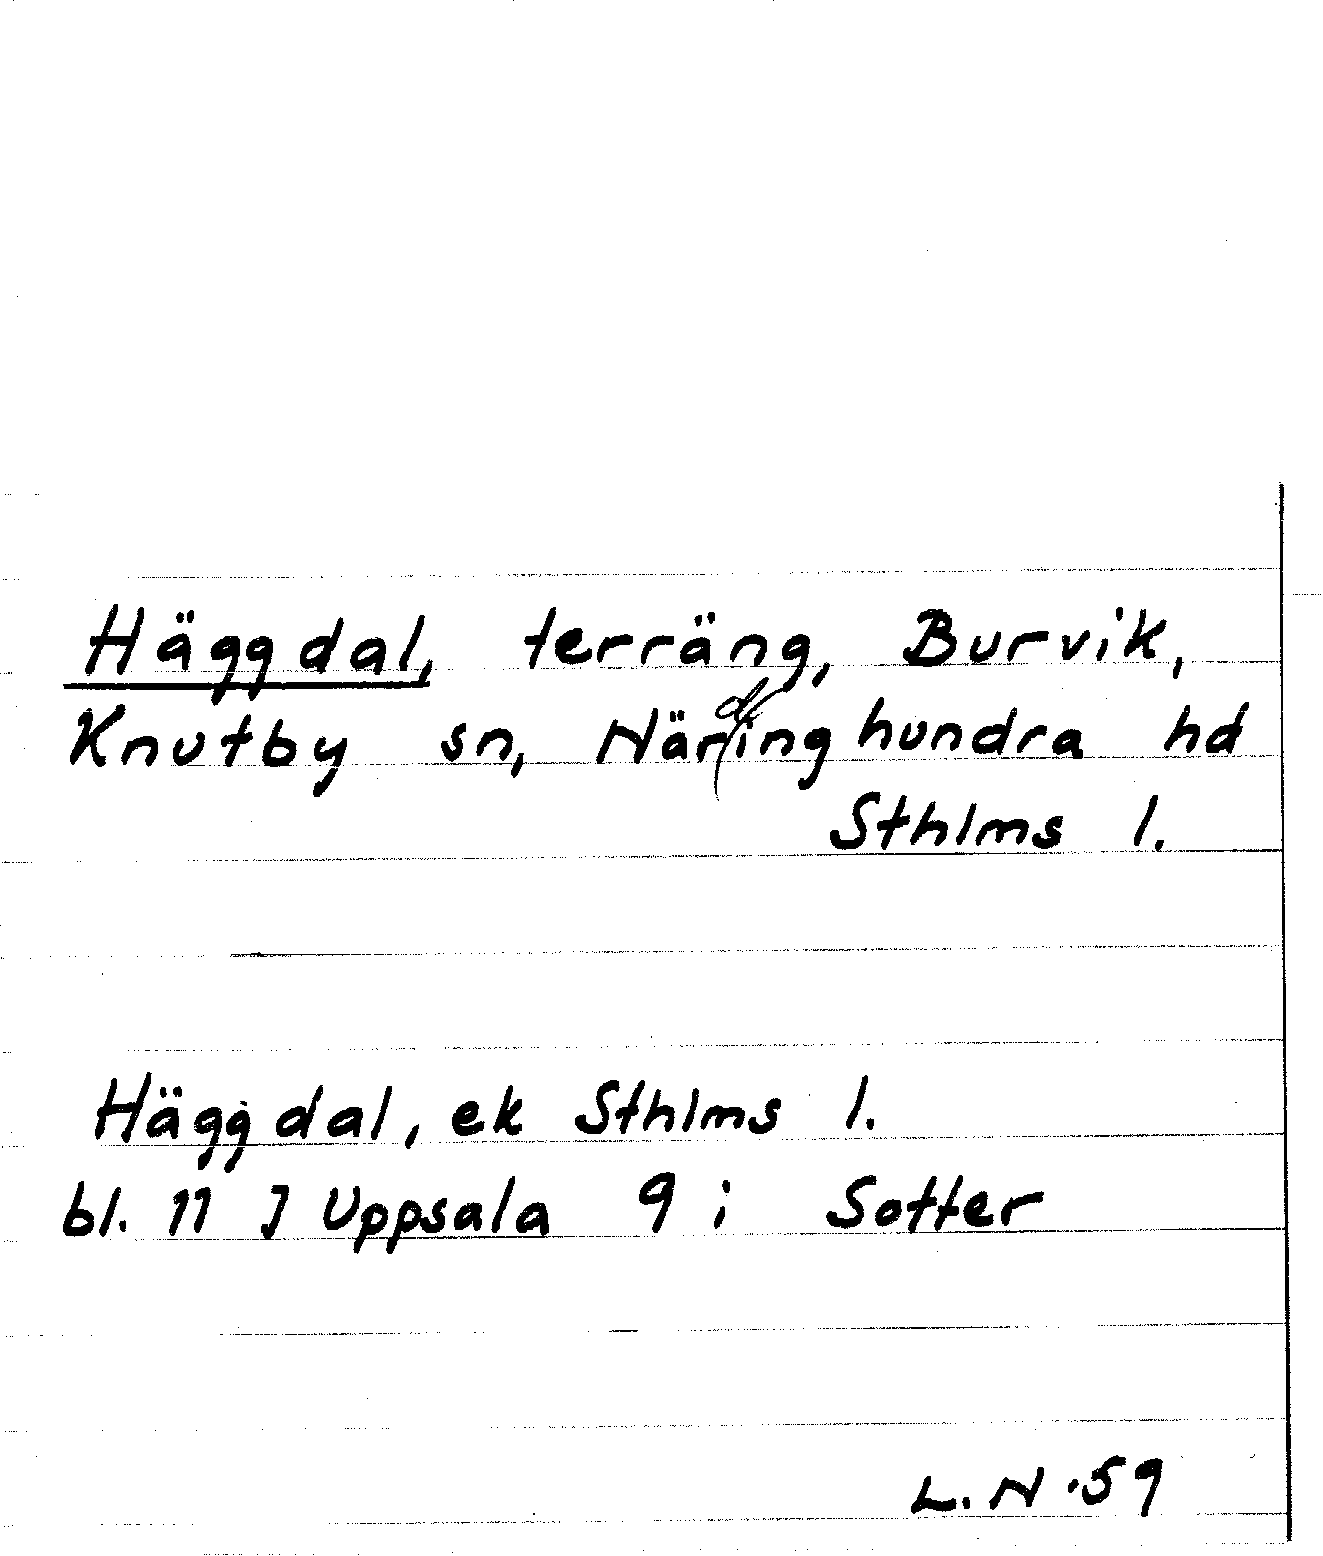 Häggdal, terräng, Burvik,
Knutby sn, Närdinghundra hd
Sthlms l.
Häggdal, ek Sthlms l.
bl. 11 J Uppsala 9 i Sotter
L. N. 59